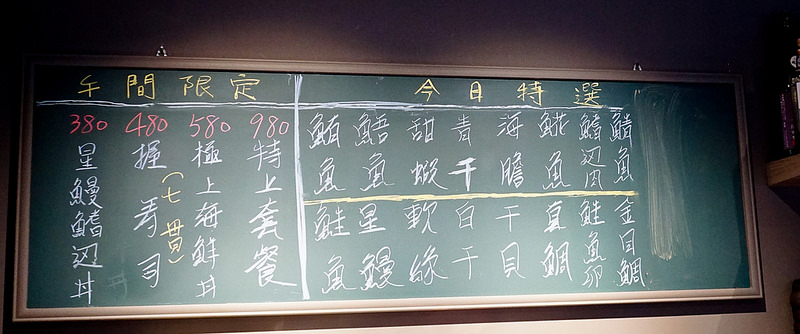 今日特選
鯖魚
鰭辺肉
魚
海膽
青干
甜蝦
魚
鮪魚
金目鯛
鮭魚卵
真鯛
干貝
白干
軟緣
星鰻
鮭魚
午間限定
980
特上套餐
580
極上海鮮丼
480
握寿司
(七貫)
380
星鰻鰭辺丼